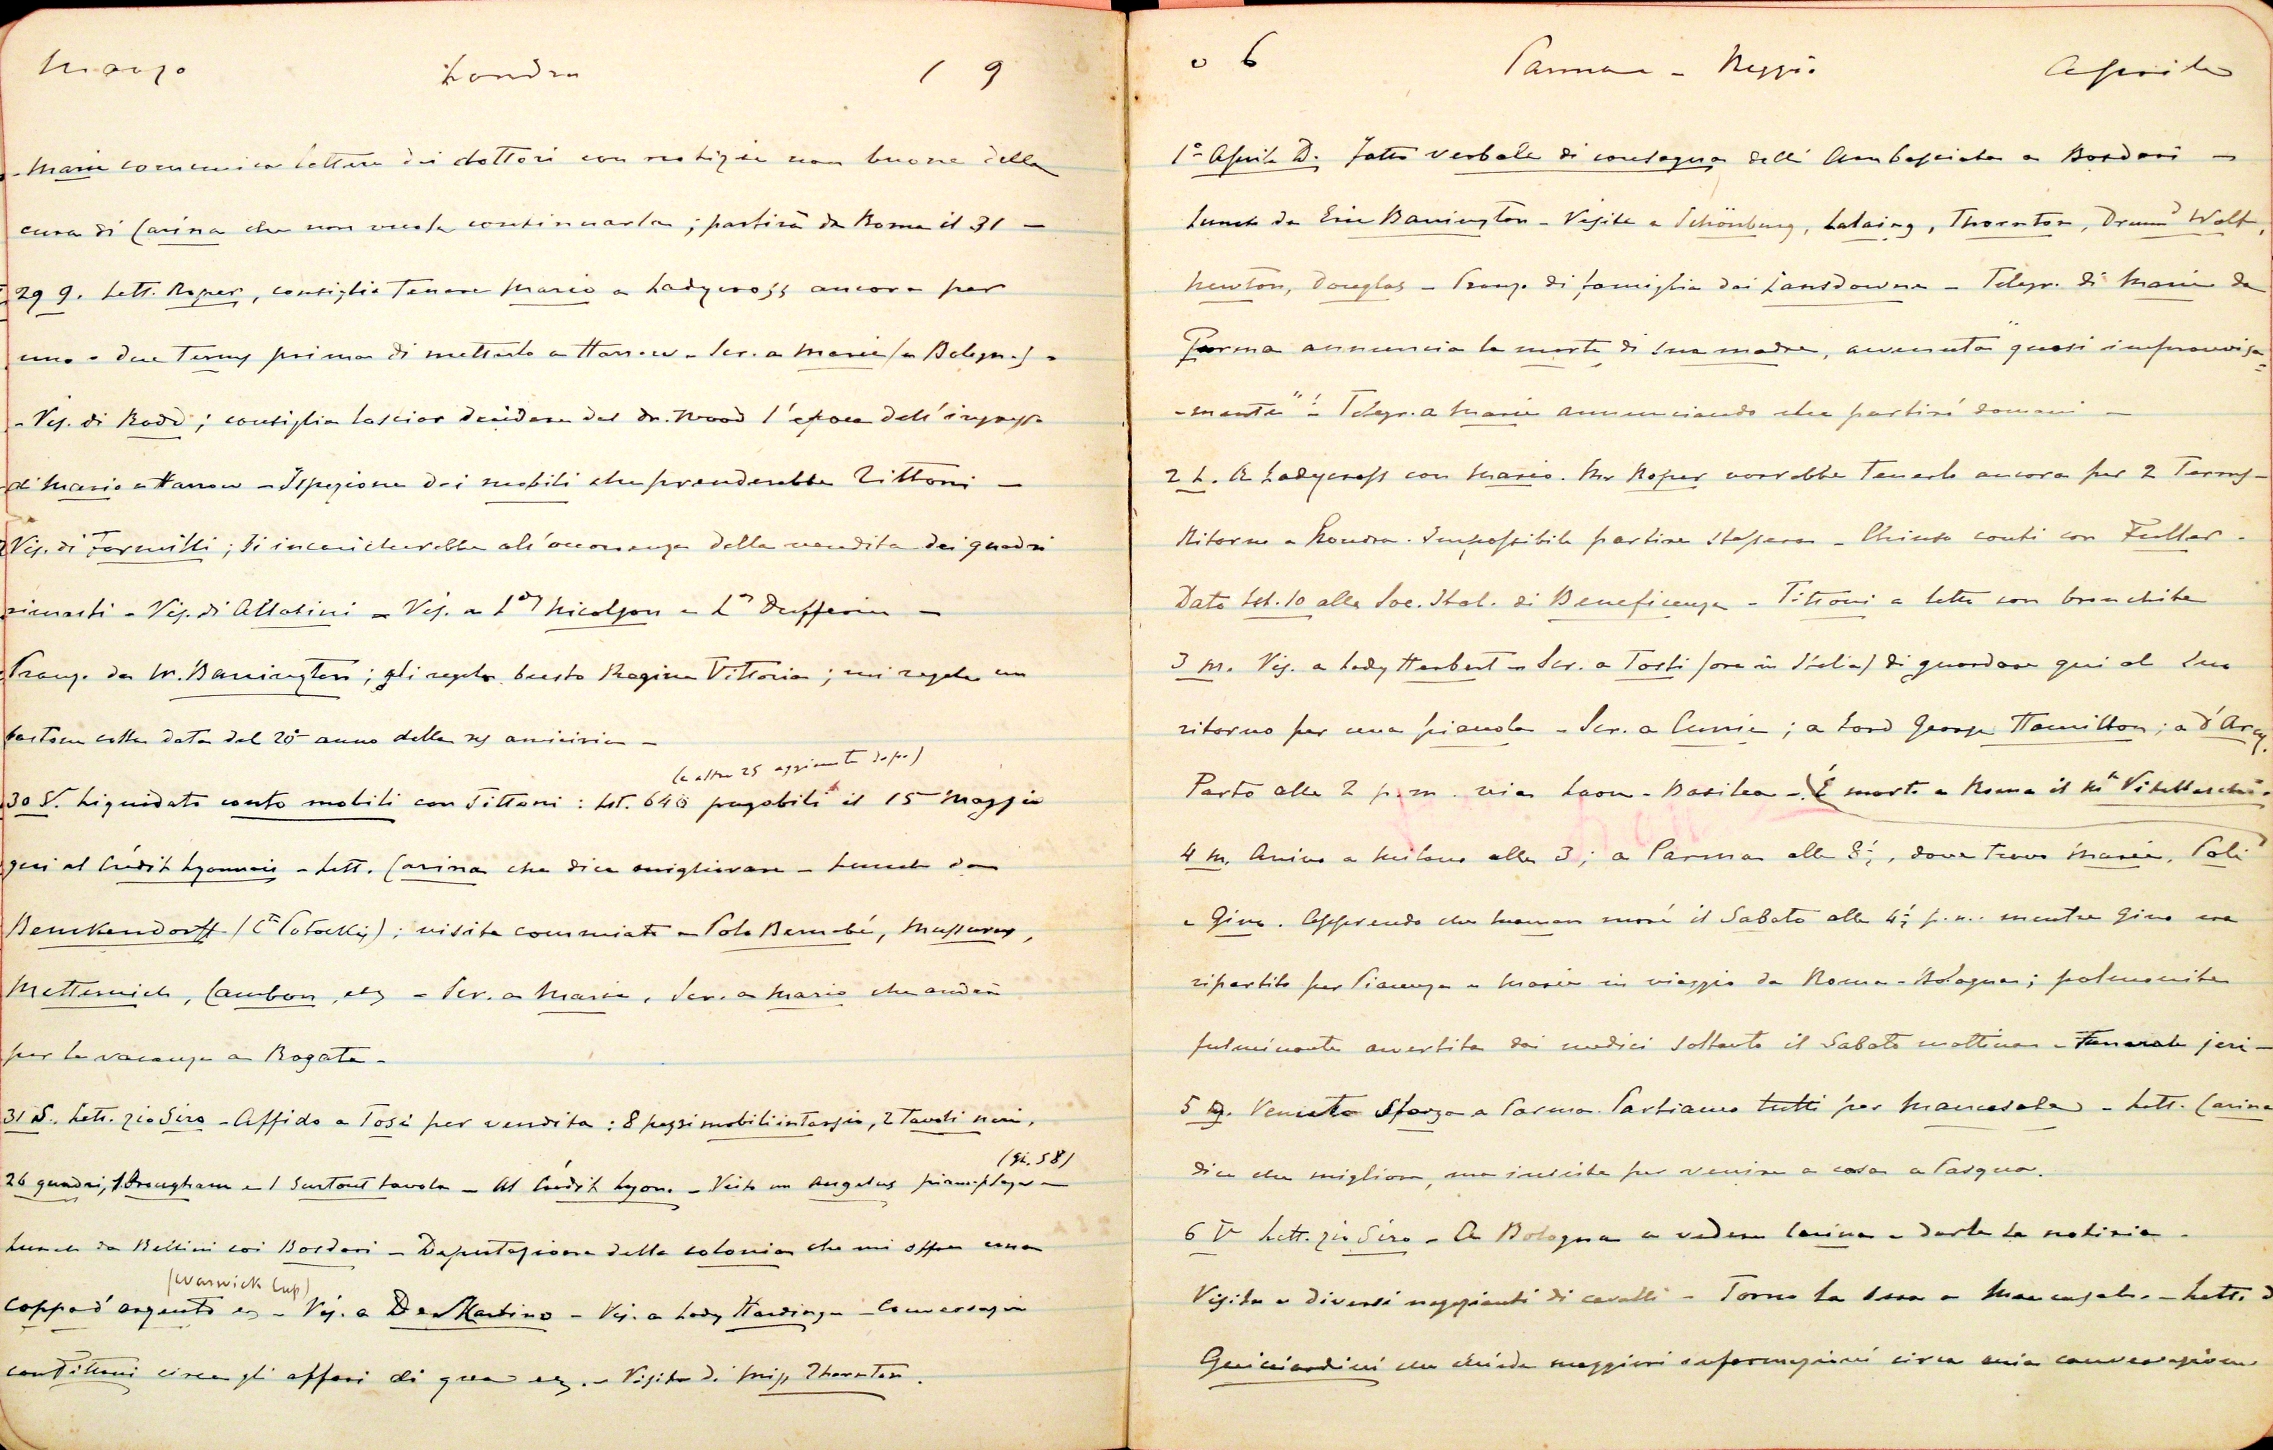 Marzo Londra 19
- Marie comunica lettere dei dottori con notizie non buone della
cura di Carina che non vuole continuarla; partirà da Roma il 31 -
29 g. Lett. Roper, consiglia tenere Mario a Ladycross ancora per
uno o due terms prima di metterlo a Harrow - Scr. a Marie (a Bologna) -
- Vis. di Rodd; consiglia lasciar decidere dal dr. Wood l'epoca dell'ingresso
di Mario a Harrow - Ispezione dei mobili che prenderebbe Tittoni -
Vis. di Formilli; s'incaricherebbe all'occorrenza della vendita dei quadri
rimasti - Vis. di Allatini - Vis. a Ldy Nicolson e Ly Dufferin -
Pranzo da W. Barrington; gli regalo busto Regina Vittoria; mi regala un
bastone colla data del 20º anno della ns amicizia -
(e altre 25 aggiunte dopo)
30 V. Liquidato conto mobili con Tittoni: Lst. 640 pagabili il 15 Maggio
qui al Crédit Lyonnais - Lett. Carina che dice migliorare - Lunch da
Benckendorff (Cte Potocki); visite commiato a Polo Bernabé, Musurus,
Metternich, Cambon, etc - Scr. a Marie, Scr. a Mario che andrà
per le vacanze a Bogate -
31 S. Lett. zio Siro - Affido a Tosi per vendita: 8 pezzi mobili intarsio, 2 tavoli neri,
(gi. 58)
26 quadri, 1 Brougham e 1 surtout tavola - Al Crédit Lyon. - Visto un Angelus
Lunch da Bellini coi Bordari - Deputazione della colonia che mi offre una
(Warwick Cup)
coppa d'argento etc - Vis. a De Martino - Vis. a Lady Hardinge - Conversazio
con Tittoni circa gli affari di etc. - Visita di Miss Thornton.
06 Parma - Reggio Aprile
1º Aprile D. Fatto verbale di consegna dell'Ambasciata a Bordari -
Lunch da Eric Barrington - Visite a Schönburg, Lalaing, Thornton, Drumd Wolf,
Newton, Douglas - Pranzo di famiglia dai Lansdowne - Telegr. di Marie da
Parma annuncia la morte di sua madre, avvenuta "quasi improvvisa=
-mente"! - Telegr. a Marie annunciando che partirò domani -
2 L. A Ladycross con Mario. Mr Roper vorrebbe tenerlo ancora per 2 Terms -
Ritorno a Londra. Impossibile partire stasera - Chiuso conti con Fuller -
Dato Lst. 10 alla Soc. Ital. di Beneficenza - Tittoni a letto con bronchite
3 M. Vis. a Lady Herbert - Scr. a Tosti (ora in Italia) di guardare qui al suo
ritorno per una pianola - Scr. a ; a Lord George Hamilton; a d'Arcy.
Parto alle 2 p.m. via Laon - Basilea - (È morto a Roma il Vitelleschi.
4 M. Arrivo a Milano alle 3; a Parma alle 8½, dove trovo Marie, Poli
e Gino. Apprendo che maman morì il Sabato alle 4½ p.m. mentre Gino era
ripartito per Piacenza e Marie in viaggio da Roma - Bologna; polmonite
fulminante avvertita dai medici soltanto il Sabato mattina - Funerale jeri -
5 g. Venuto Sforza a Parma. Partiamo tutti per Mancasale - Lett. Carina
dice che migliora, ma insiste per venire a casa a Pasqua.
6 V Lett. zio Siro - A Bologna a vedere Carina e darle la notizia -
Visita a diversi negozianti di cavalli - Torno la sera a Mancasale. - Lett. d
Guicciardini che chiede maggiori informazioni circa mia conversazione